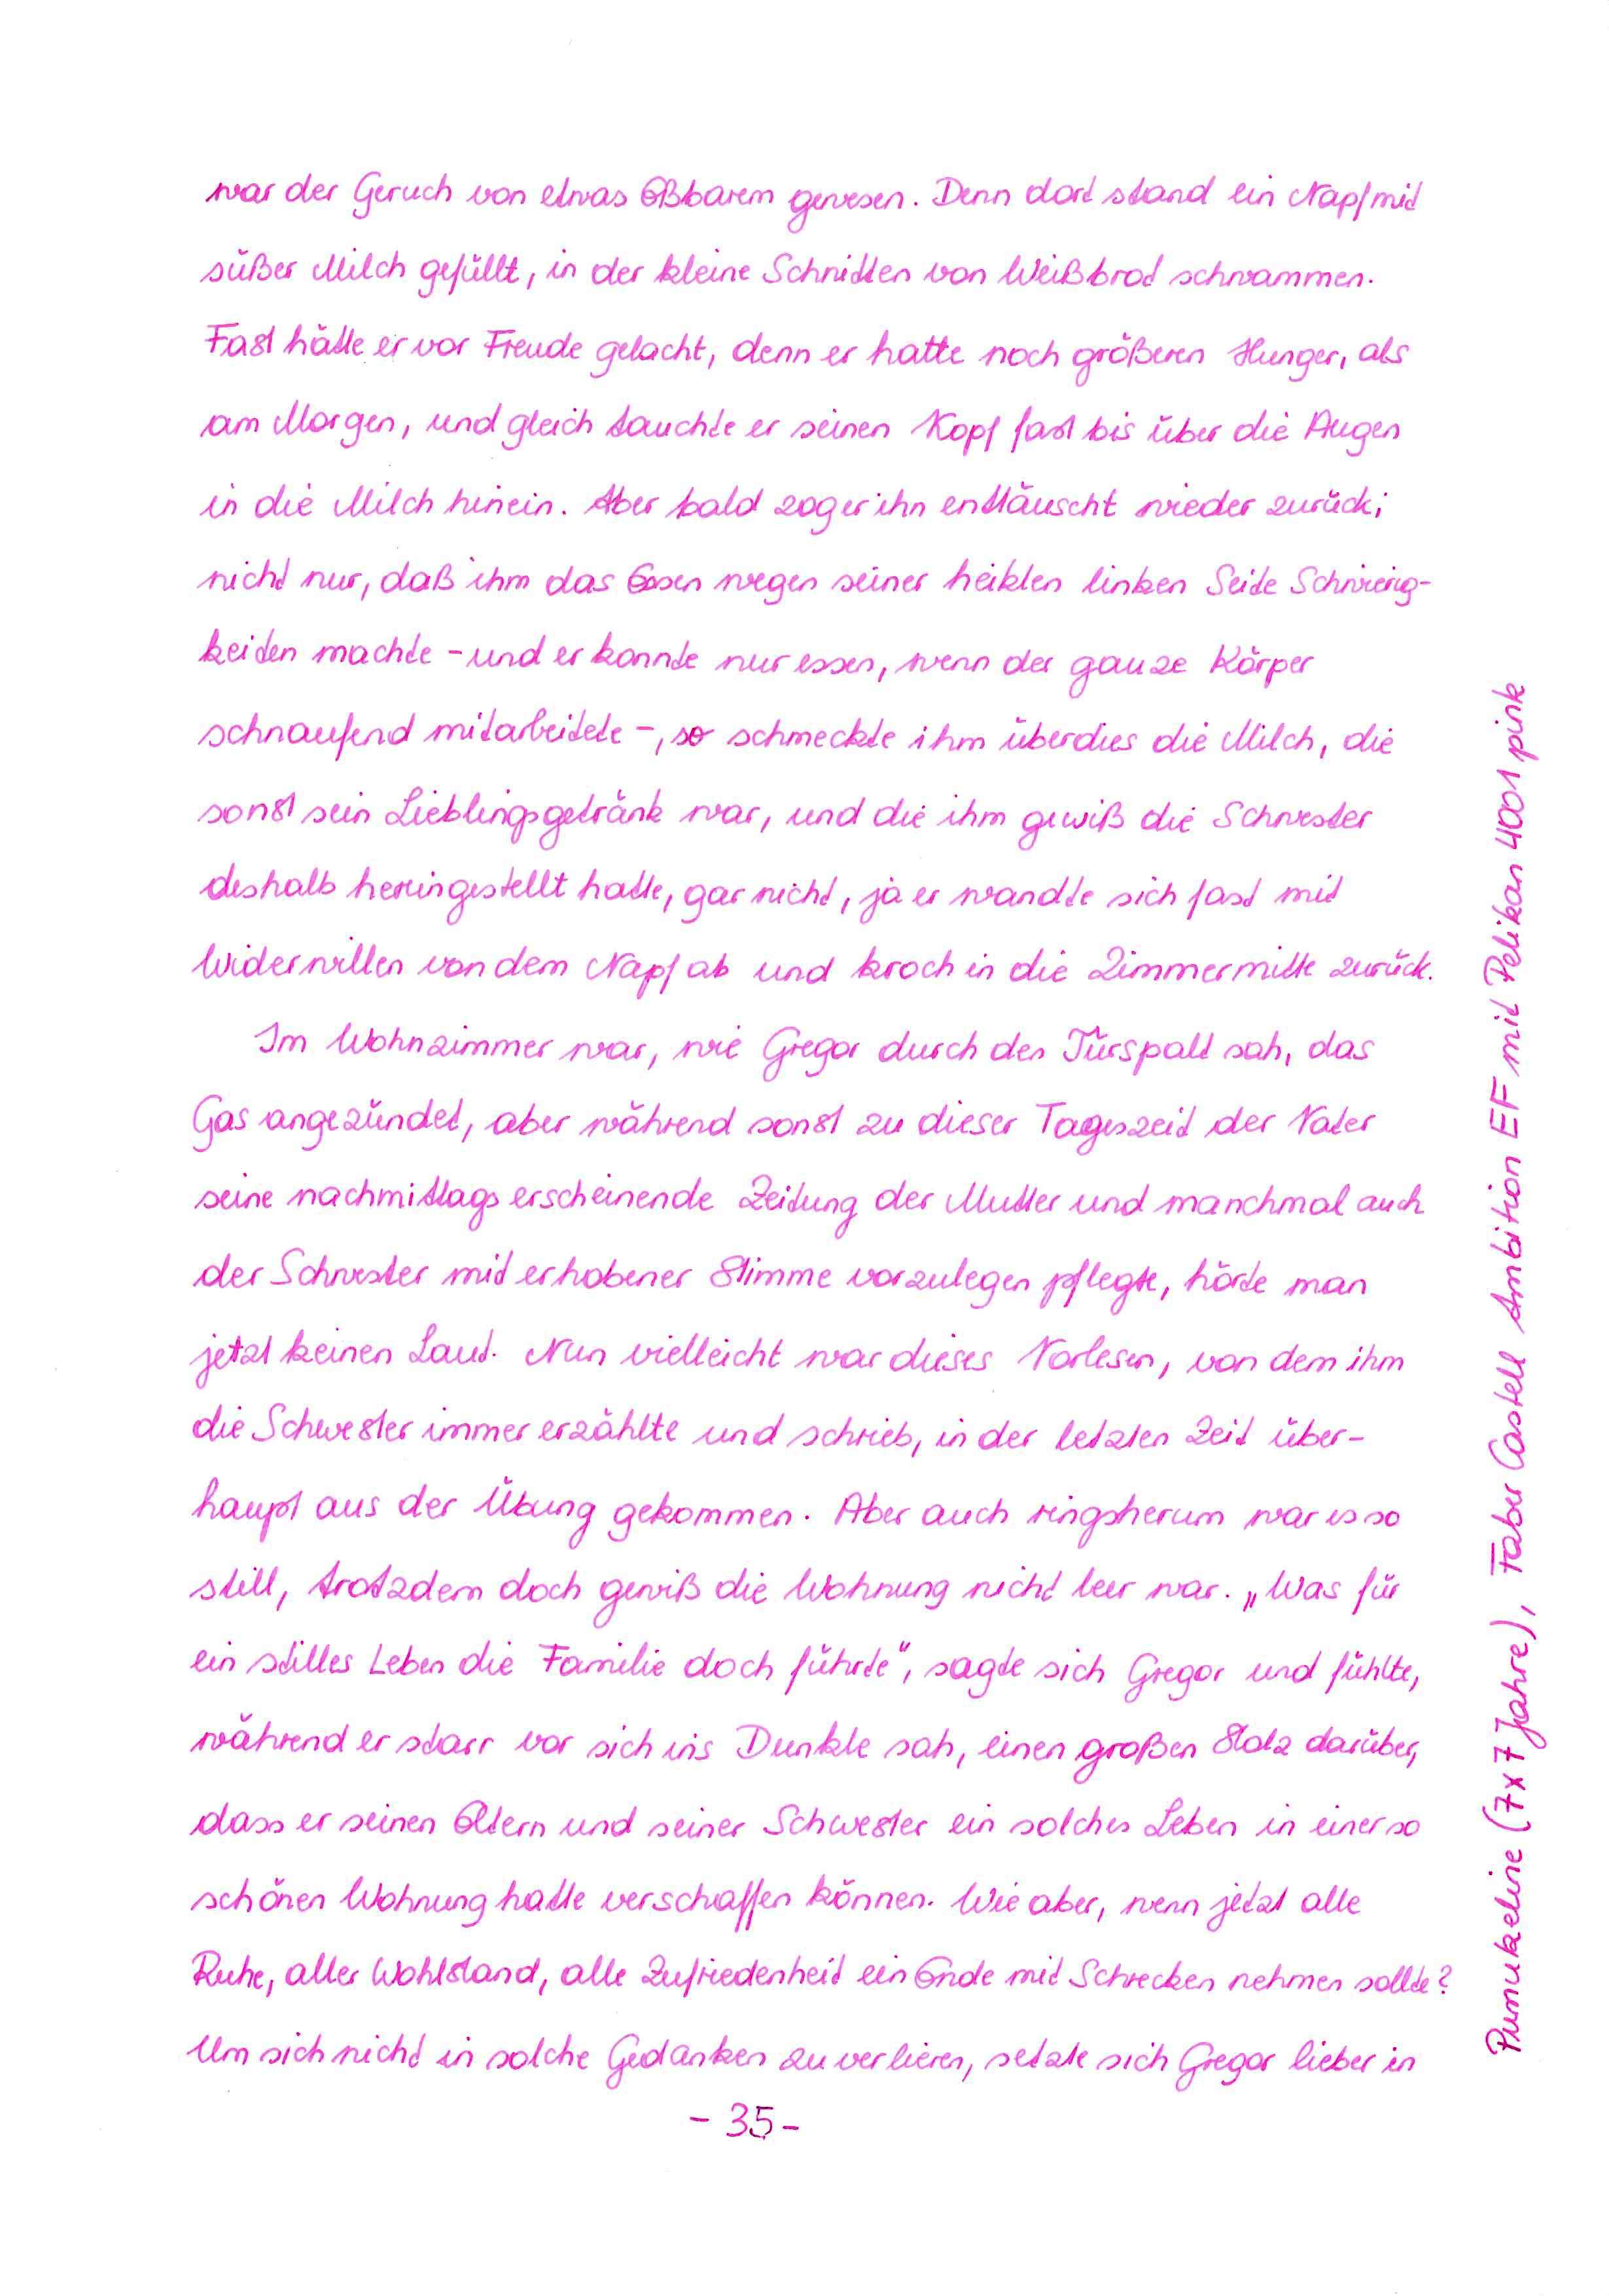 war der Geruch von etwas Eßbarem gewesen. Denn dort stand ein Napf mit
süßer Milch gefüllt, in der kleine Schnitten von Weißbrot schwammen.
Fast hätte er vor Freude gelacht, denn er hatte noch größeren Hunger, als
am Morgen, und gleich tauchte er seinen Kopf fast bis über die Augen
in die Milch hinein. Aber bald zog er ihn enttäuscht wieder zurück;
nicht nur, daß ihm das Essen wegen seiner heiklen linken Seite Schwierig-
keiten machte - und er konnte nur essen, wenn der ganze Körper
schnaufend mitarbeitete -, so schmeckte ihm überdies die Milch, die
sonst sein Lieblingsgetränk war, und die ihm gewiß die Schwester
deshalb hereingestellt hatte, gar nicht, ja er wandte sich fast mit
Widerwillen von dem Napf ab und kroch in die Zimmermitte zurück.
Im Wohnzimmer war, wie Gregor durch den Türspalt sah, das
Gas angezündet, aber während sonst zu dieser Tageszeit der Vater
seine nachmittags erscheinende Zeitung der Mutter und manchmal auch
der Schwester mit erhobener Stimme vorzulegen pflegte, hörte man
jetzt keinen Laut. Nun vielleicht war dieses Vorlesen, von dem ihm
die Schwester immer erzählte und schrieb, in der letzten Zeit über-
haupt aus der Übung gekommen. Aber auch ringsherum war es so
still, trotzdem doch gewiß die Wohnung nicht leer war. „Was für
ein stilles Leben die Familie doch führte“, sagte sich Gregor und fühlte,
während er starr vor sich ins Dunkle sah, einen großen Stolz darüber,
dass er seinen Eltern und seiner Schwester ein solches Leben in einer so
schönen Wohnung hatte verschaffen können. Wie aber, wenn jetzt alle
Ruhe, aller Wohlstand, alle Zufriedenheit ein Ende mit Schrecken nehmen sollte?
Um sich nicht in solche Gedanken zu verlieren, setzte sich Gregor lieber in
- 35 -
Pumukeline (7x7 Jahre), Faber Castell Ambition EF mit Pelikan 4001 pink